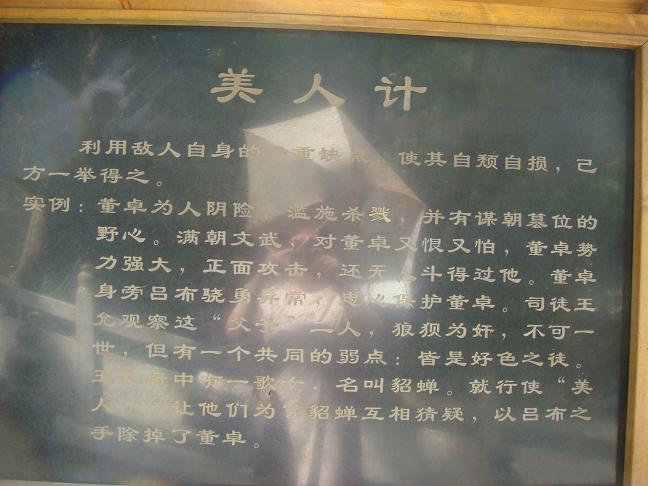 美人计
利用敌人自身的严重缺点，使其自颓自损，己
方一举得之。
实例：董卓为人阴险，滥施杀戮，并有谋朝墓位的
野心。满朝文武，对董卓又恨又怕，董卓势
力强大，正面攻击，还无人斗得过他。董卓
身旁吕布骁勇异常，忠心保护董卓。司徒王
允观察这“父子”二人，狼狈为奸，不可一
世，但有一个共同的弱点：皆是好色之徒。
王府中有一歌女，名叫貂蝉。就行使“美
人计”让他们为了貂蝉互相猜疑，以吕布之
手除掉了董卓。